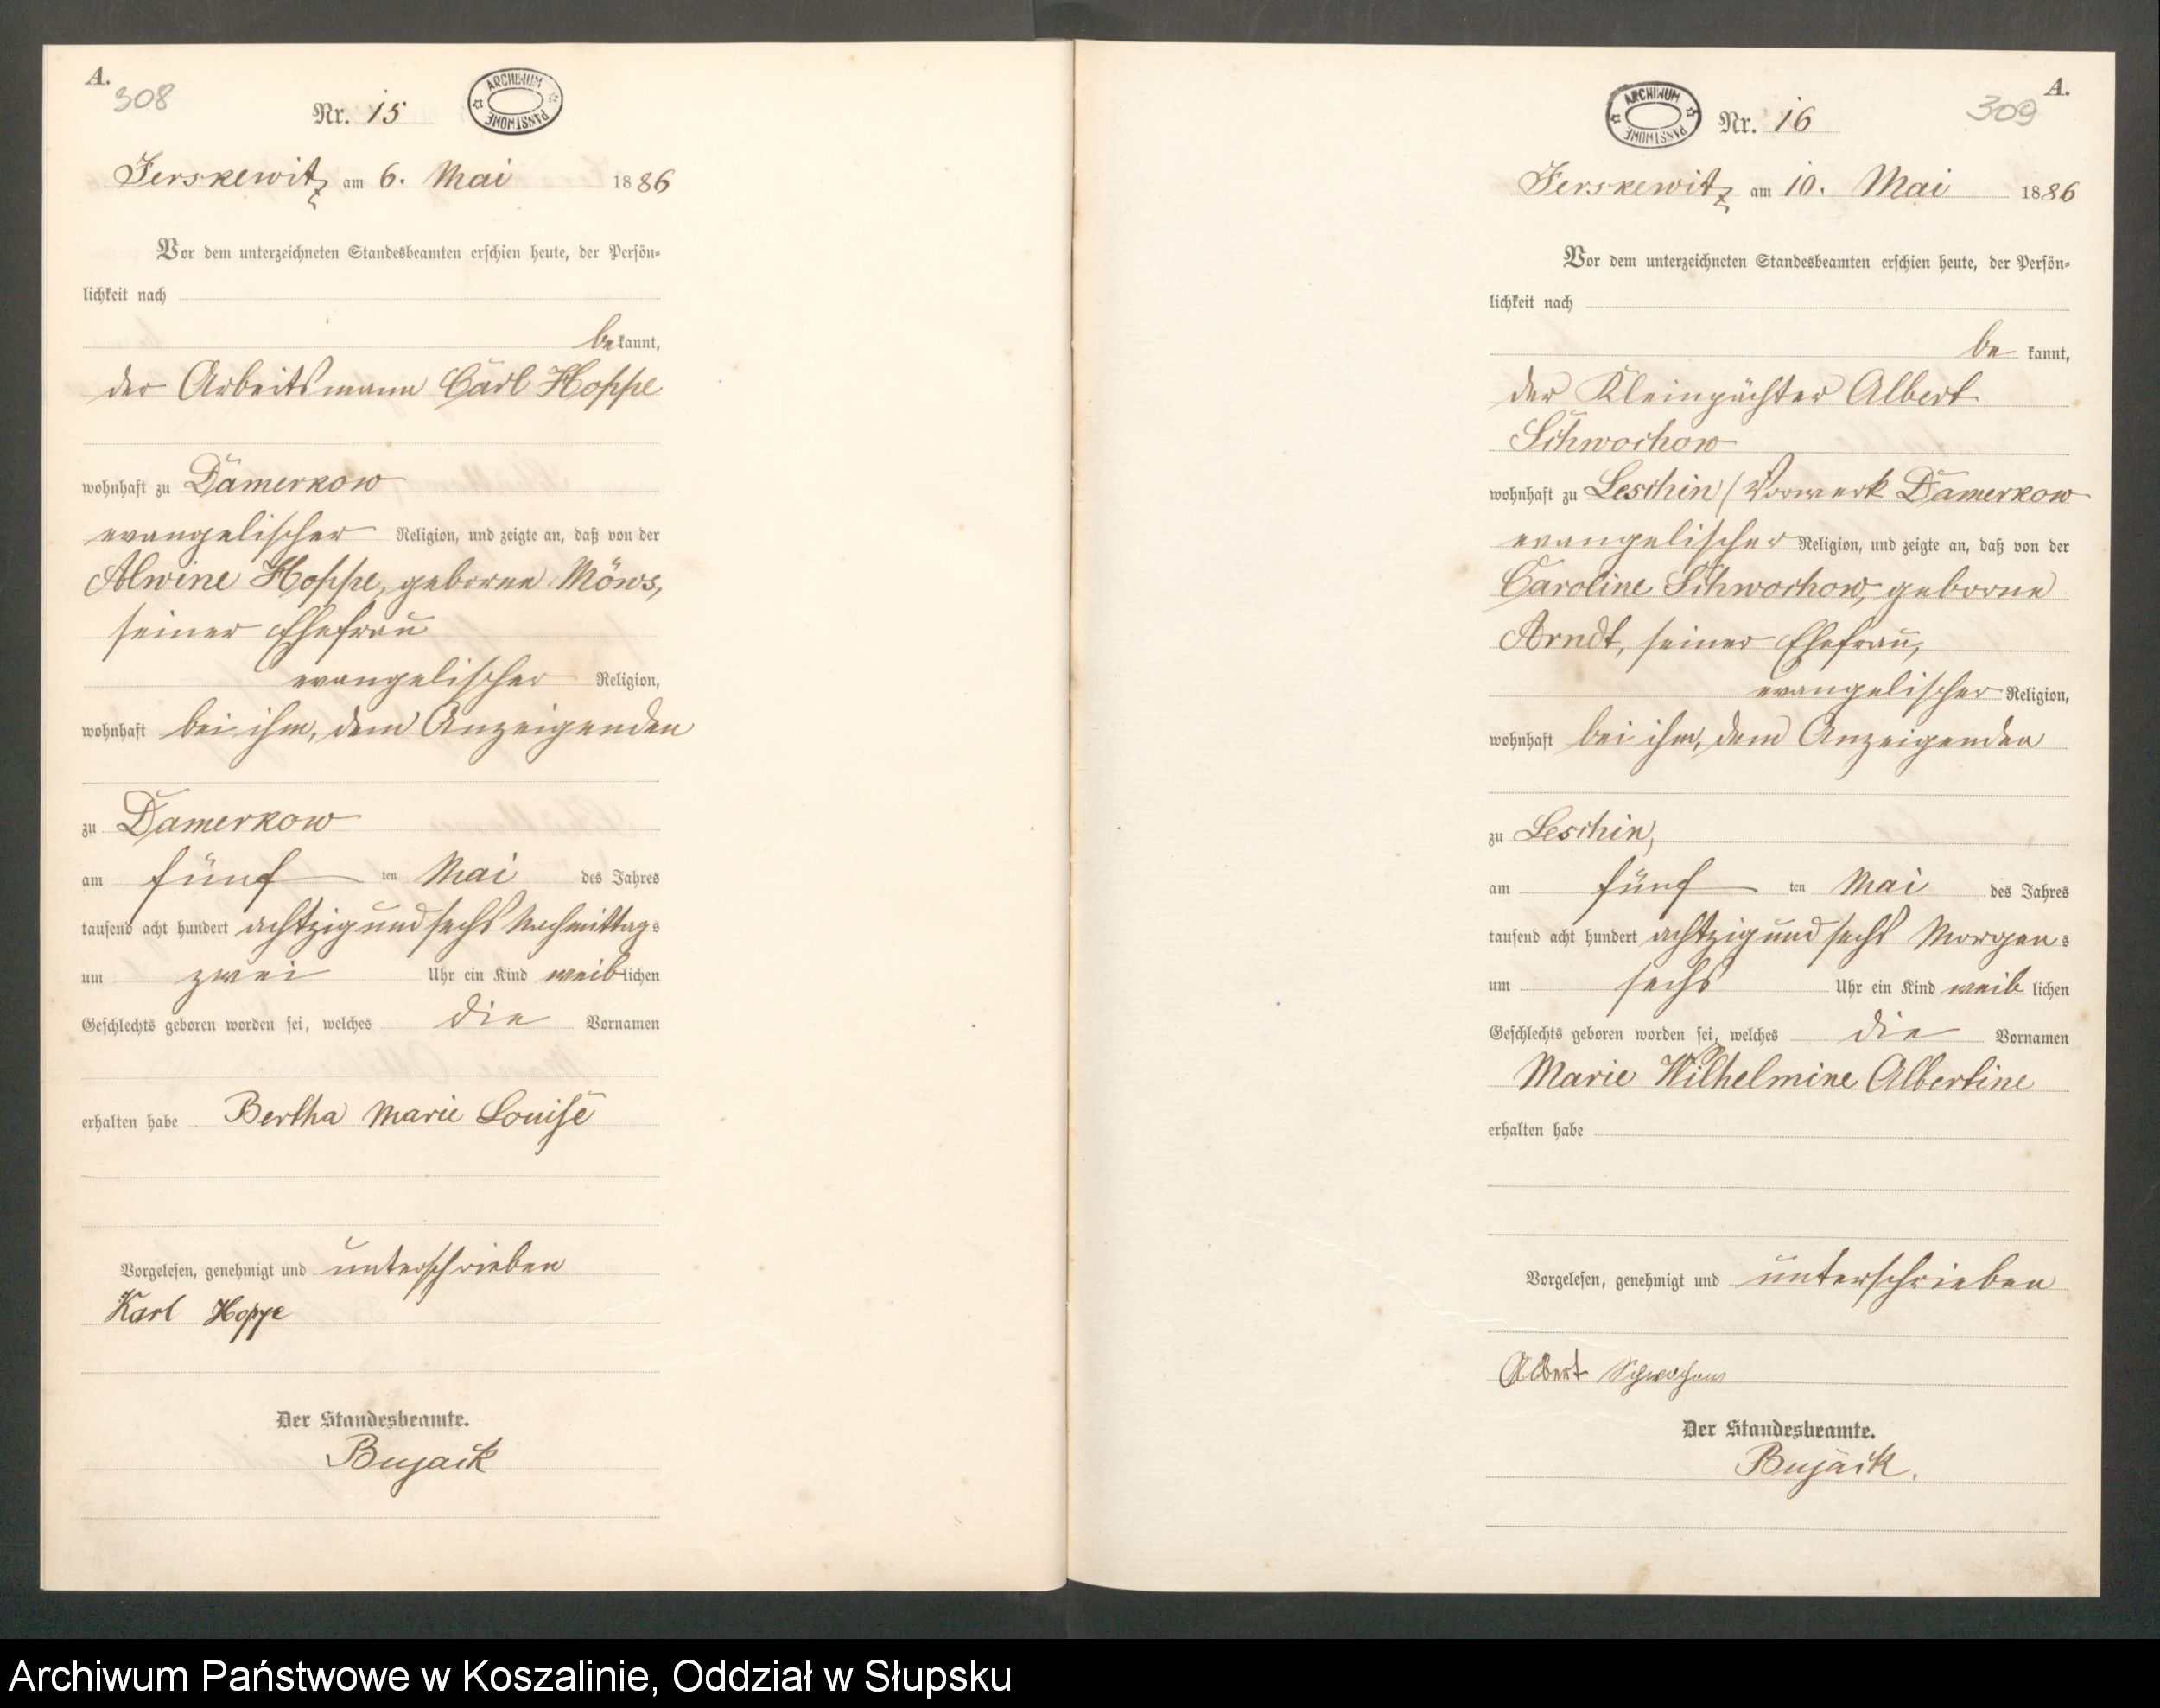 A.
308
Nr. 15
ARCHIWUM PAŃSTWOWE
Jerskewitz am 6. Mai 1886
Vor dem unterzeichneten Standesbeamten erschien heute, der Persön-
lichkeit nach
bekannt,
der Arbeitsmann Carl Hoppe
wohnhaft zu Damerkow
evangelischer Religion, und zeigte an, daß von der
Alwine Hoppe, geborne Möws,
seiner Ehefrau
evangelischer Religion,
wohnhaft bei ihm, dem Anzeigenden
zu Damerkow
am fünf ten Mai des Jahres
tausend acht hundert achtzig und sechs Nachmittags
um zwei Uhr ein Kind weiblichen
Geschlechts geboren worden sei, welches die Vornamen
erhalten habe Bertha Marie Louise
Vorgelesen, genehmigt und unterschrieben
Karl Hoppe
Der Standesbeamte.
Bujack
A.
309
ARCHIWUM PAŃSTWOWE
Nr. 16
Jerskewitz am 10. Mai 1886
Vor dem unterzeichneten Standesbeamten erschien heute, der Persön-
lichkeit nach
be kannt,
der Kleinpächter Albert
Schwochow
wohnhaft zu Leschin / Vorwerk Damerkow
evangelischer Religion, und zeigte an, daß von der
Caroline Schwochow, geborne
Arndt, seiner Ehefrau,
evangelischer Religion,
wohnhaft bei ihm, dem Anzeigenden
zu Leschin,
am fünf ten Mai des Jahres
tausend acht hundert achtzig und sechs Morgens
um sechs Uhr ein Kind weib lichen
Geschlechts geboren worden sei, welches die Vornamen
Marie Wilhelmine Albertine
erhalten habe
Vorgelesen, genehmigt und unterschrieben
Albert Schwochow
Der Standesbeamte.
Bujack.
Archiwum Państwowe w Koszalinie, Oddział w Słupsku